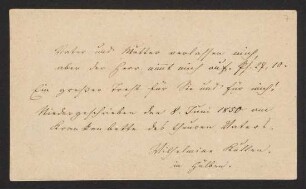 Vater und Mutter verlassen mich,
aber der Herr nimmt mich auf. Ps. 27. 10.
Ein großer Trost für Sie und für mich.
Niedergeschrieben den 8. Juni 1850 am
Krankenbette des theuren Vaters.
Wilhelmine
in